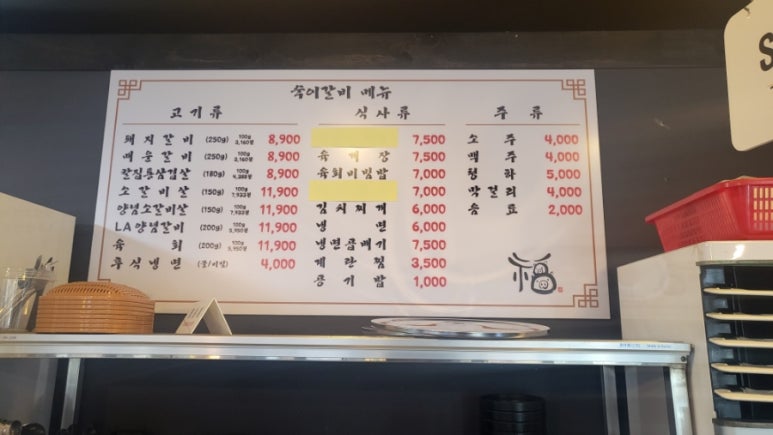 속이갈비 메뉴
고기류
돼지갈비 (250g) 100g 3,160원 8,900
매운갈비 (250g) 100g 3,160원 8,900
칼집통삼겹살 (180g) 8,900
소갈비살 (150g) 100g 7,933원 11,900
양념소갈비살 (150g) 100g 7,933원 11,900
LA양념갈비 (200g) 100g 5,950원 11,900
육회 (200g) 100g 5,950원 11,900
후식냉면 (물/비빔) 4,000
식사류
7,500
육개장 7,500
육회비빔밥 7,000
7,000
김치찌개 6,000
냉면 6,000
냉면곱빼기 7,500
계란찜 3,500
공기밥 1,000
주류
소주 4,000
맥주 4,000
청하 5,000
막걸리 4,000
음료 2,000
福
S